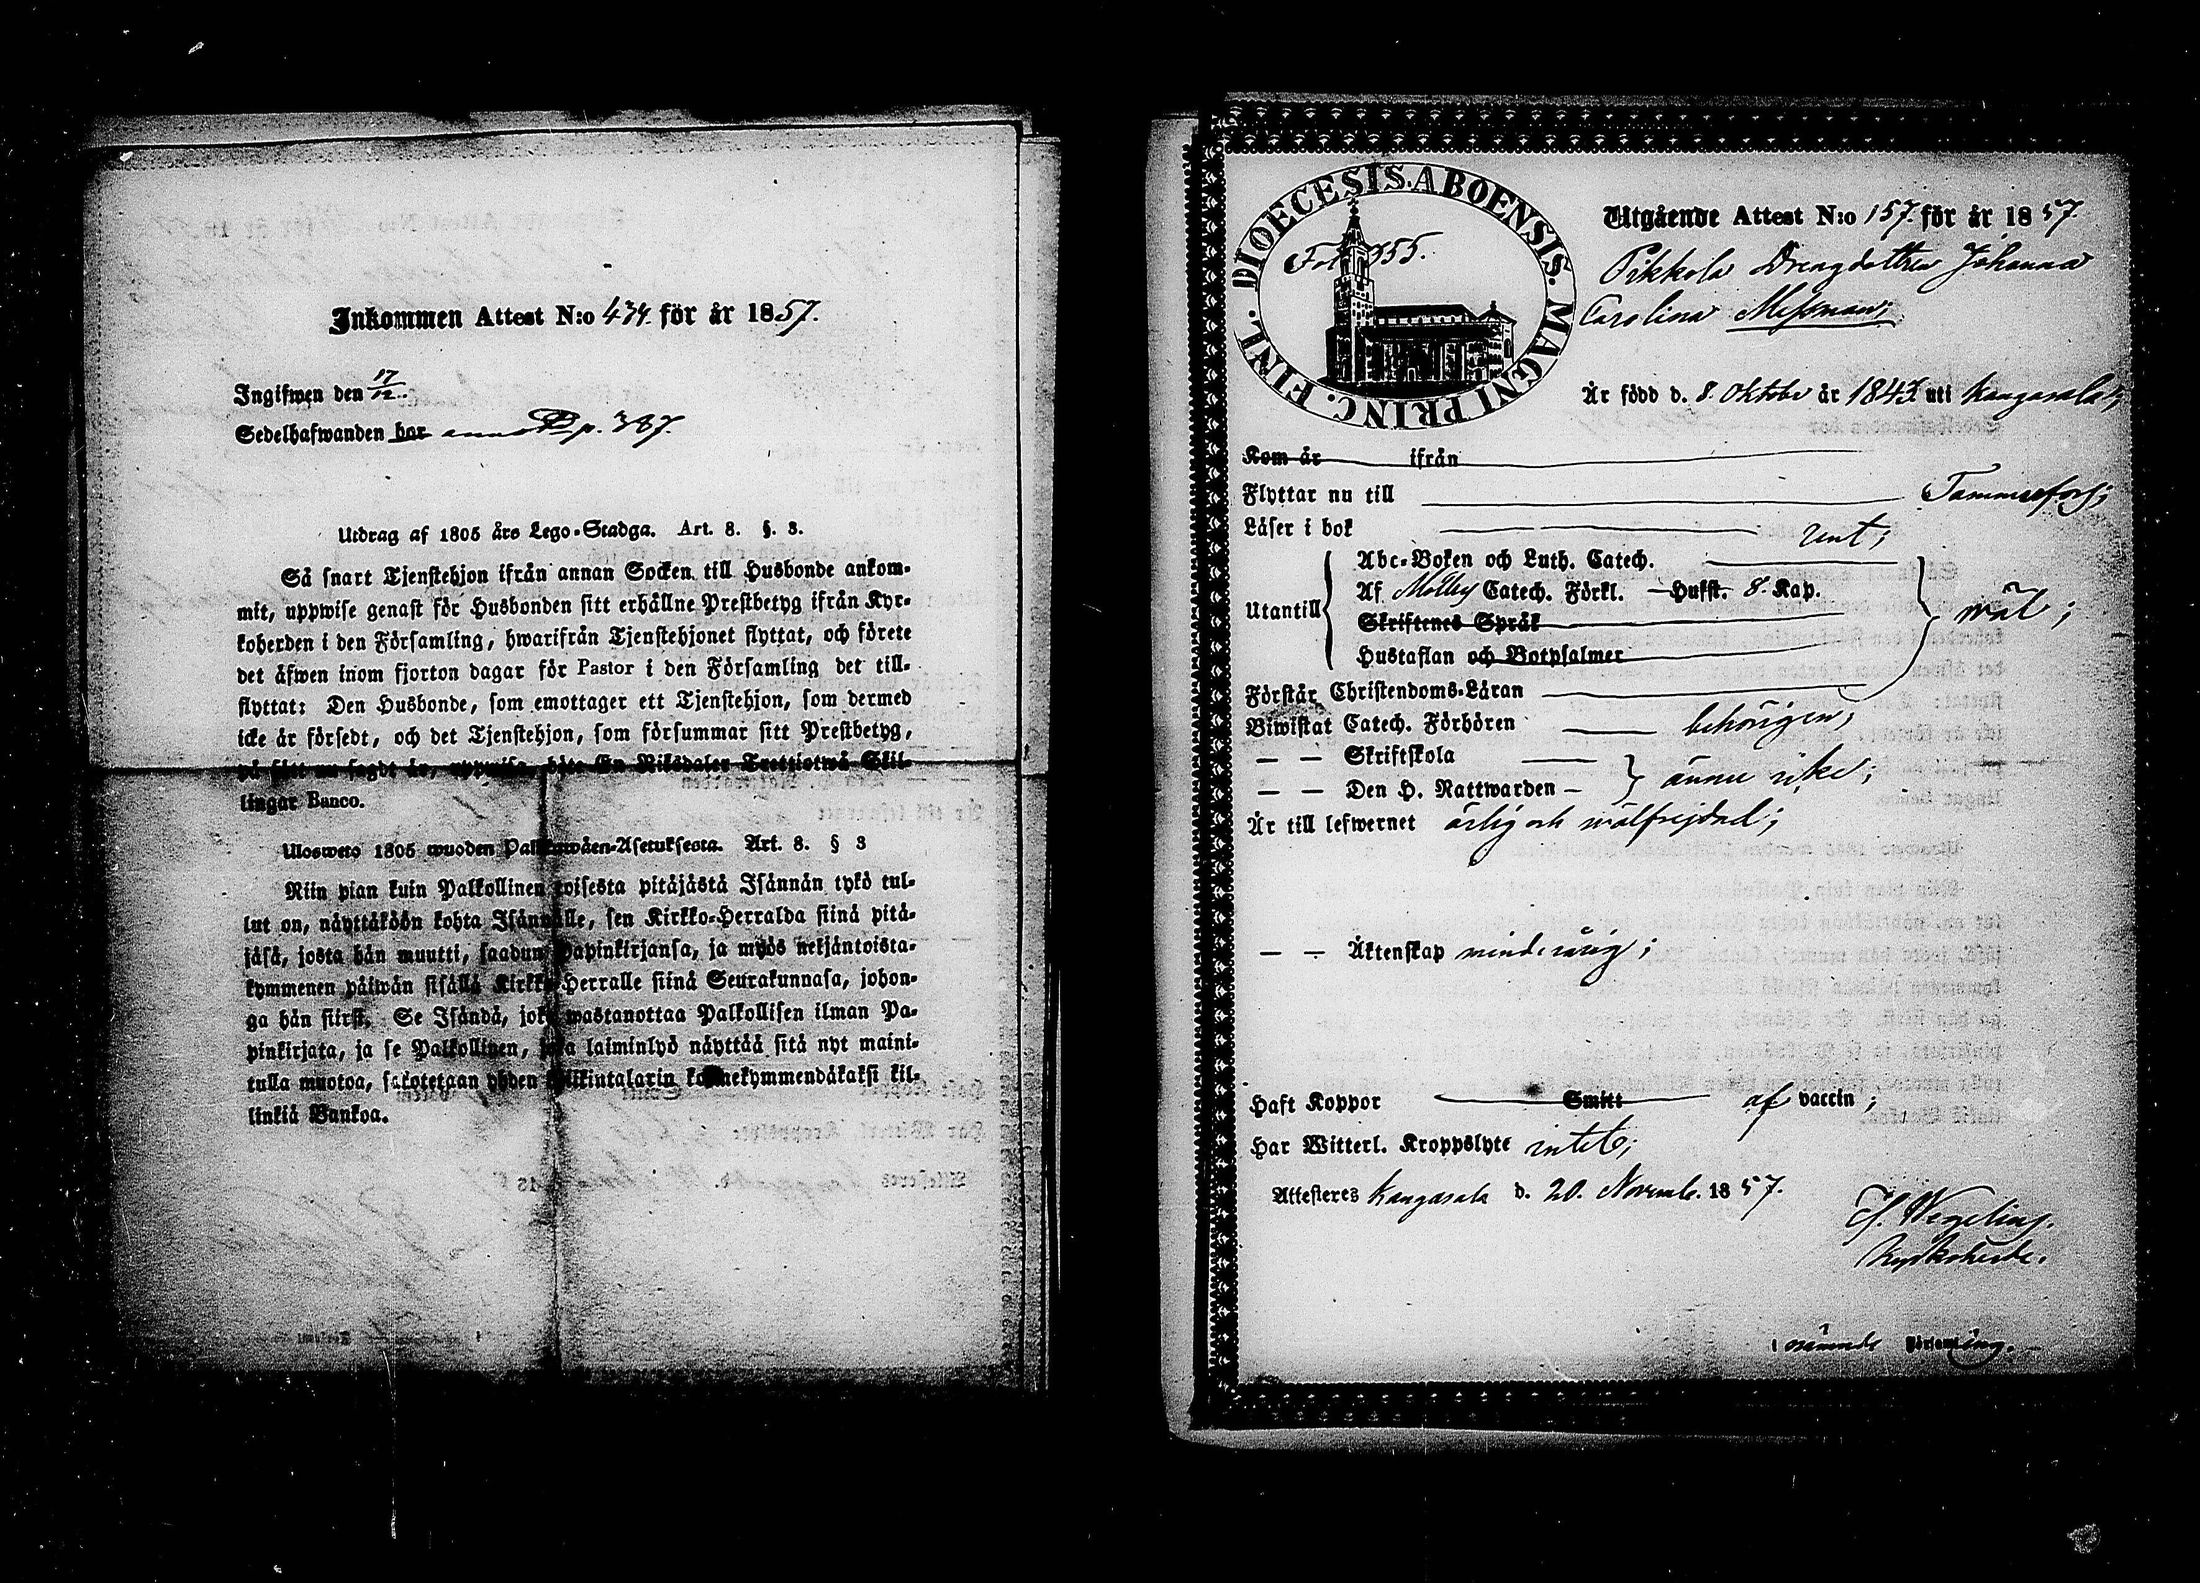 Inkommen Attest N:o 434. för år 1857.
Ingifwen den 17/12.
Sedelhafwanden har p. 387.
Utdrag af 1805 års Lego-Stadga. Art. 8. §. 3.
Så snart Tjenstehjon ifrån annan Socken till Husbonde ankom-
mit, uppwise genast för Husbonden sitt erhållne Prestbetyg ifrån Kyr-
koherden i den Församling, hwarifrån Tjenstehjonet flyttat, och förete
det äfwen inom fjorton dagar för Pastor i den Församling det till-
flyttat: Den Husbonde, som emottager ett Tjenstehjon, som dermed
icke är försedt, och det Tjenstehjon, som försummar sitt Prestbetyg,
på sätt nu sagdt är, uppwisa, böte En Riksdaler Trettiotwå Skil-
lingar Banco.
Ulosweto 1805 wuoden Palkawäen-Asetuksesta. Art. 8. § 3
Niin pian kuin Palkollinen toisesta pitäjästä Isännän tykö tul-
lut on, näyttäköön kohta Isännälle, sen Kirkko-Herralda siinä pitä-
jäsä, josta hän muutti, saadun Papinkirjansa, ja myös neljäntoista-
kymmenen päiwän sisällä Kirkko-Herralle siinä Seurakunnasa, johon-
ga hän siirsi. Se Isändä, joka wastanottaa Palkollisen ilman Pa-
pinkirjata, ja se Palkollinen, joka laiminlyö näyttää sitä nyt maini-
tulla muotoa, sakotetaan yhden Riikintalarin kolmekymmendäkaksi kil-
linkiä Bankoa.
DIOECESIS. ABOENSIS. MAGNI PRINC. FINL.
Fol. 355.
Utgående Attest N:o 157. för år 1857.
Pikkola Drengdottren Johanna
Carolina Messman;
Är född d. 8. Oktober år 1843. uti Kangasala;
Kom år ifrån
Flyttar nu till Tammerfors;
Läser i bok rent;
Utantill
Abc-Boken och Luth. Catech.
Af Möllers Catech. Förkl. Hufst. 8. Kap.
Skriftenes Språk
Hustaflan och Botpsalmer
wäl;
Förstår Christendoms-Läran
Biwistat Catech. Förhören behörigen;
— — Skriftskola
— — Den H. Nattwarden — ännu icke;
Är till lefwernet ärlig och wälfrejdad;
— — Äktenskap minderårig;
Haft Koppor Smitt af vaccin;
Har Witterl. Kroppslyte intet;
Attesteres Kangasala d. 20. Novemb. 1857.
Wegelius.
Kyrkoherde.
i nämnde Församling.